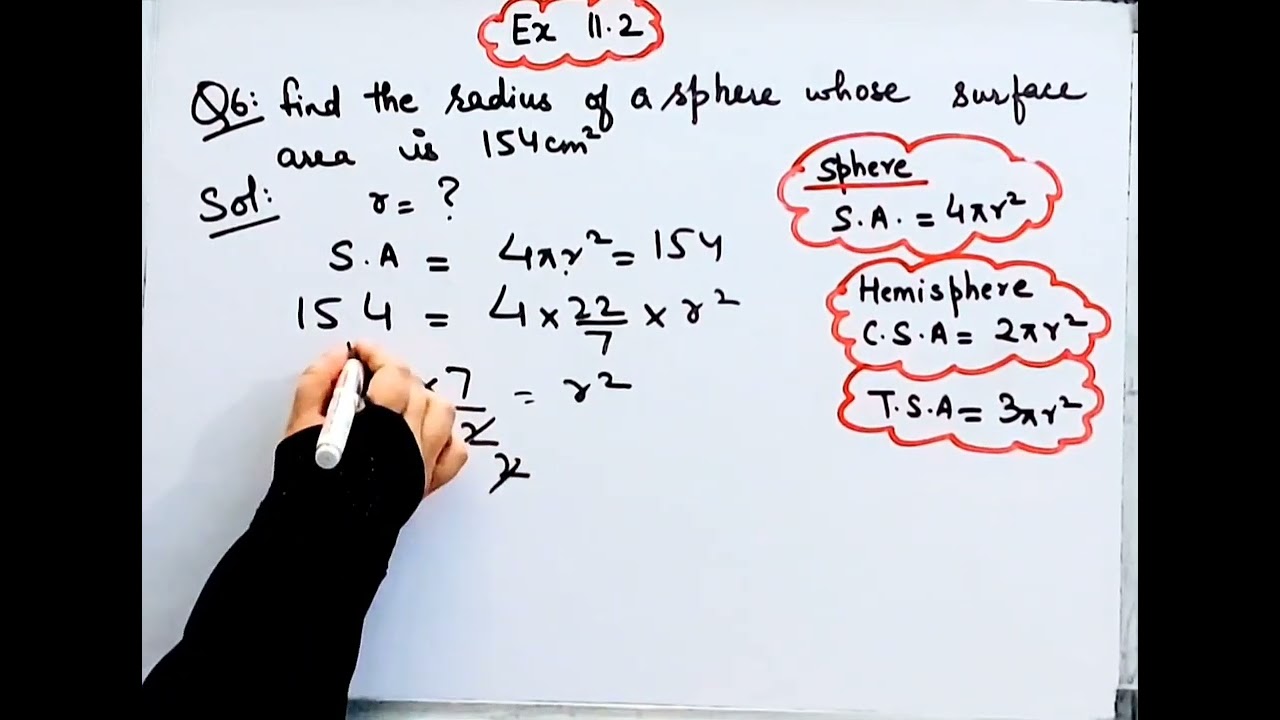 Ex 11.2
Q6: find the radius of a sphere whose surface
area is 154cm²
Sol: r = ?
S.A = 4πr² = 154
154 = 4 × 22/7 × r²
× 7 = r²
2
2
Sphere
S.A. = 4πr²
Hemisphere
C.S.A = 2πr²
T.S.A = 3πr²